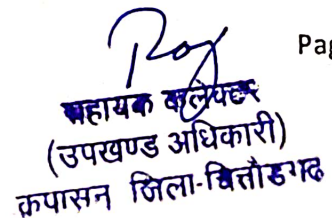 Pag
सहायक कलेक्टर
(उपखण्ड अधिकारी)
कपासन जिला-चित्तौडगढ